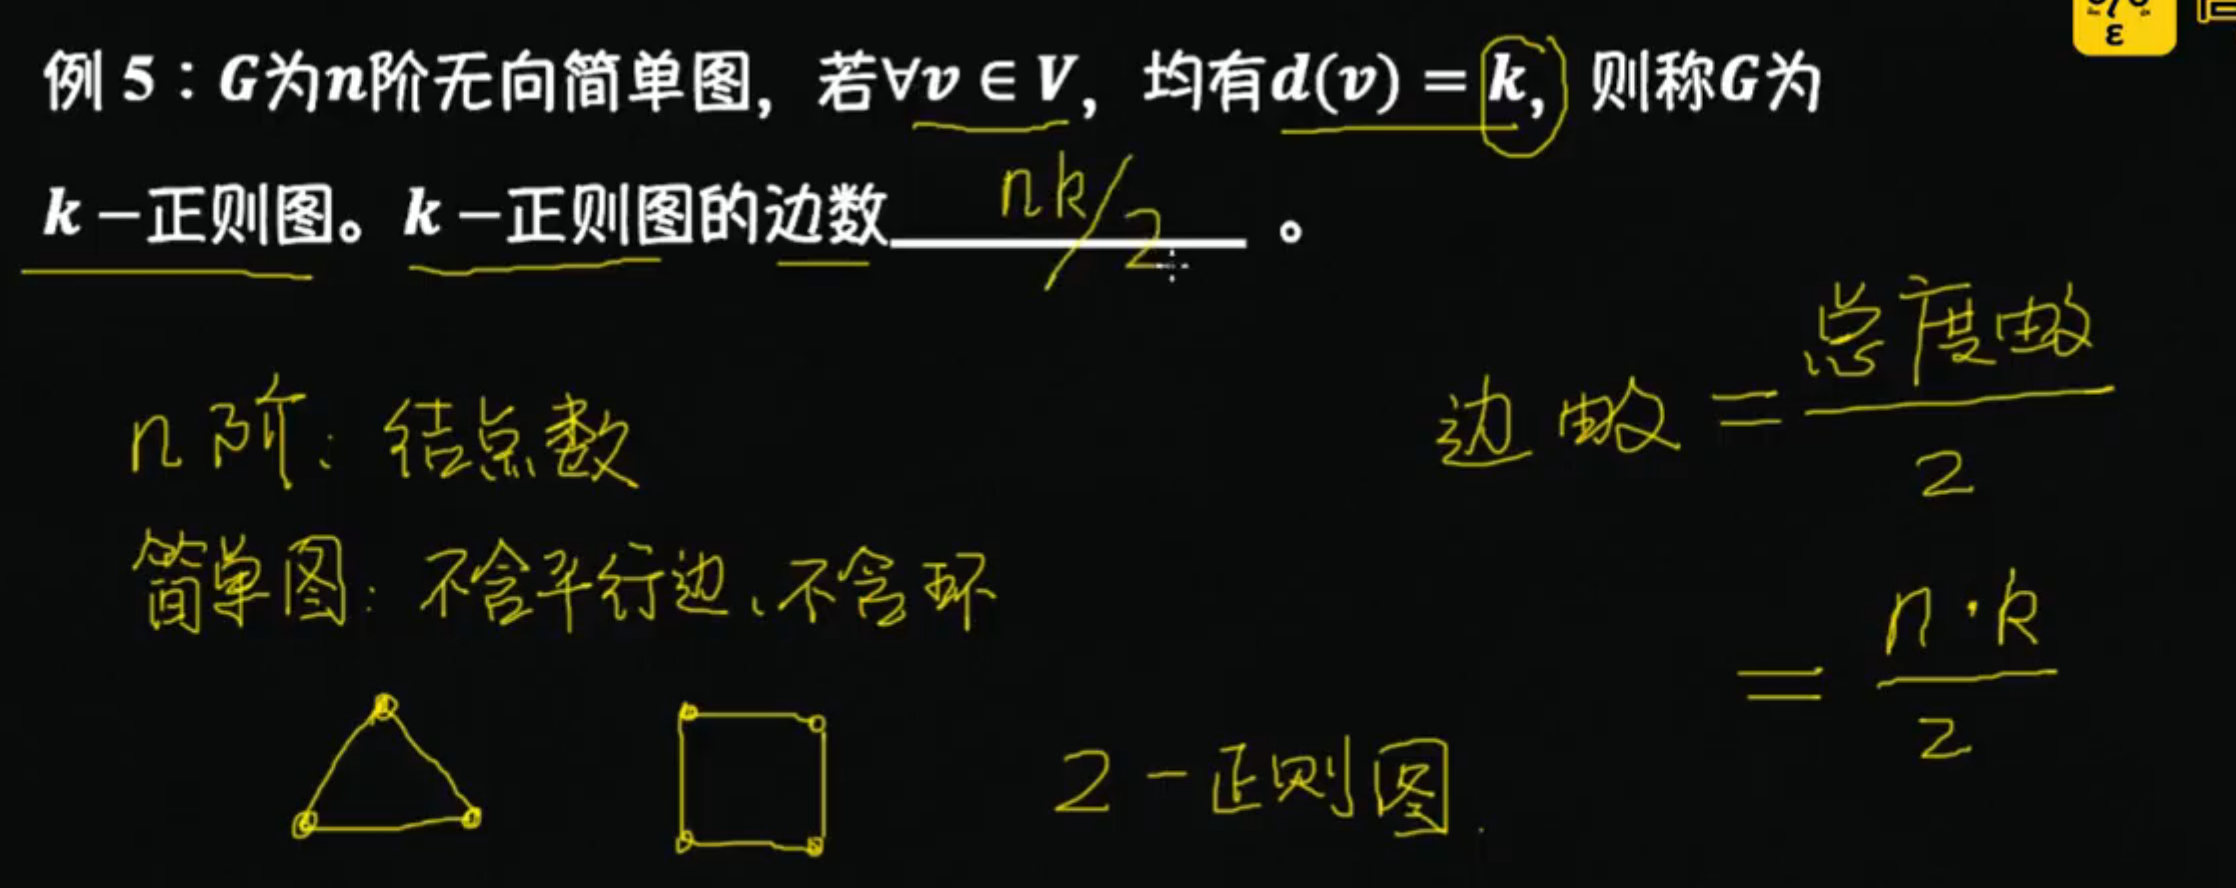 例 5：G为n阶无向简单图，若∀v ∈ V，均有d(v) = k，则称G为
k －正则图。k －正则图的边数 nk/2 。
n阶：结点数
简单图：不含平行边、不含环
2 － 正则图.
边数 = 总度数/2
= n·k/2